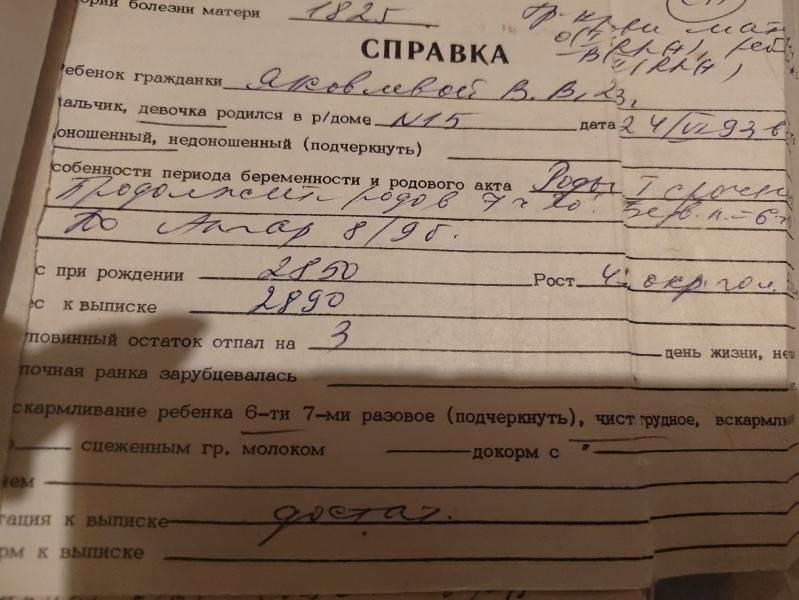 ории болезни матери 1825
Гр. кр-ви мат
О(I)
В(III) (Rh+)
СПРАВКА
ебенок гражданки Яковлевой В.В. 23 г.
альчик, девочка родился в р/доме N 15 дата 24/VI-93 г.
оношенный, недоношенный (подчеркнуть)
собенности периода беременности и родового акта Роды I срочн
Продолжит. родов 7 ч Безв. п. = 6 ч
По Апгар 8/9 б.
с при рождении 2850 Рост 4 окр. гол.
ес к выписке 2890
уповинный остаток отпал на 3 день жизни, не
почная ранка зарубцевалась
скармливание ребенка 6-ти 7-ми разовое (подчеркнуть), чист грудное, вскармли
сцеженным гр. молоком докорм с "
ием
тация к выписке достат.
рм к выписке